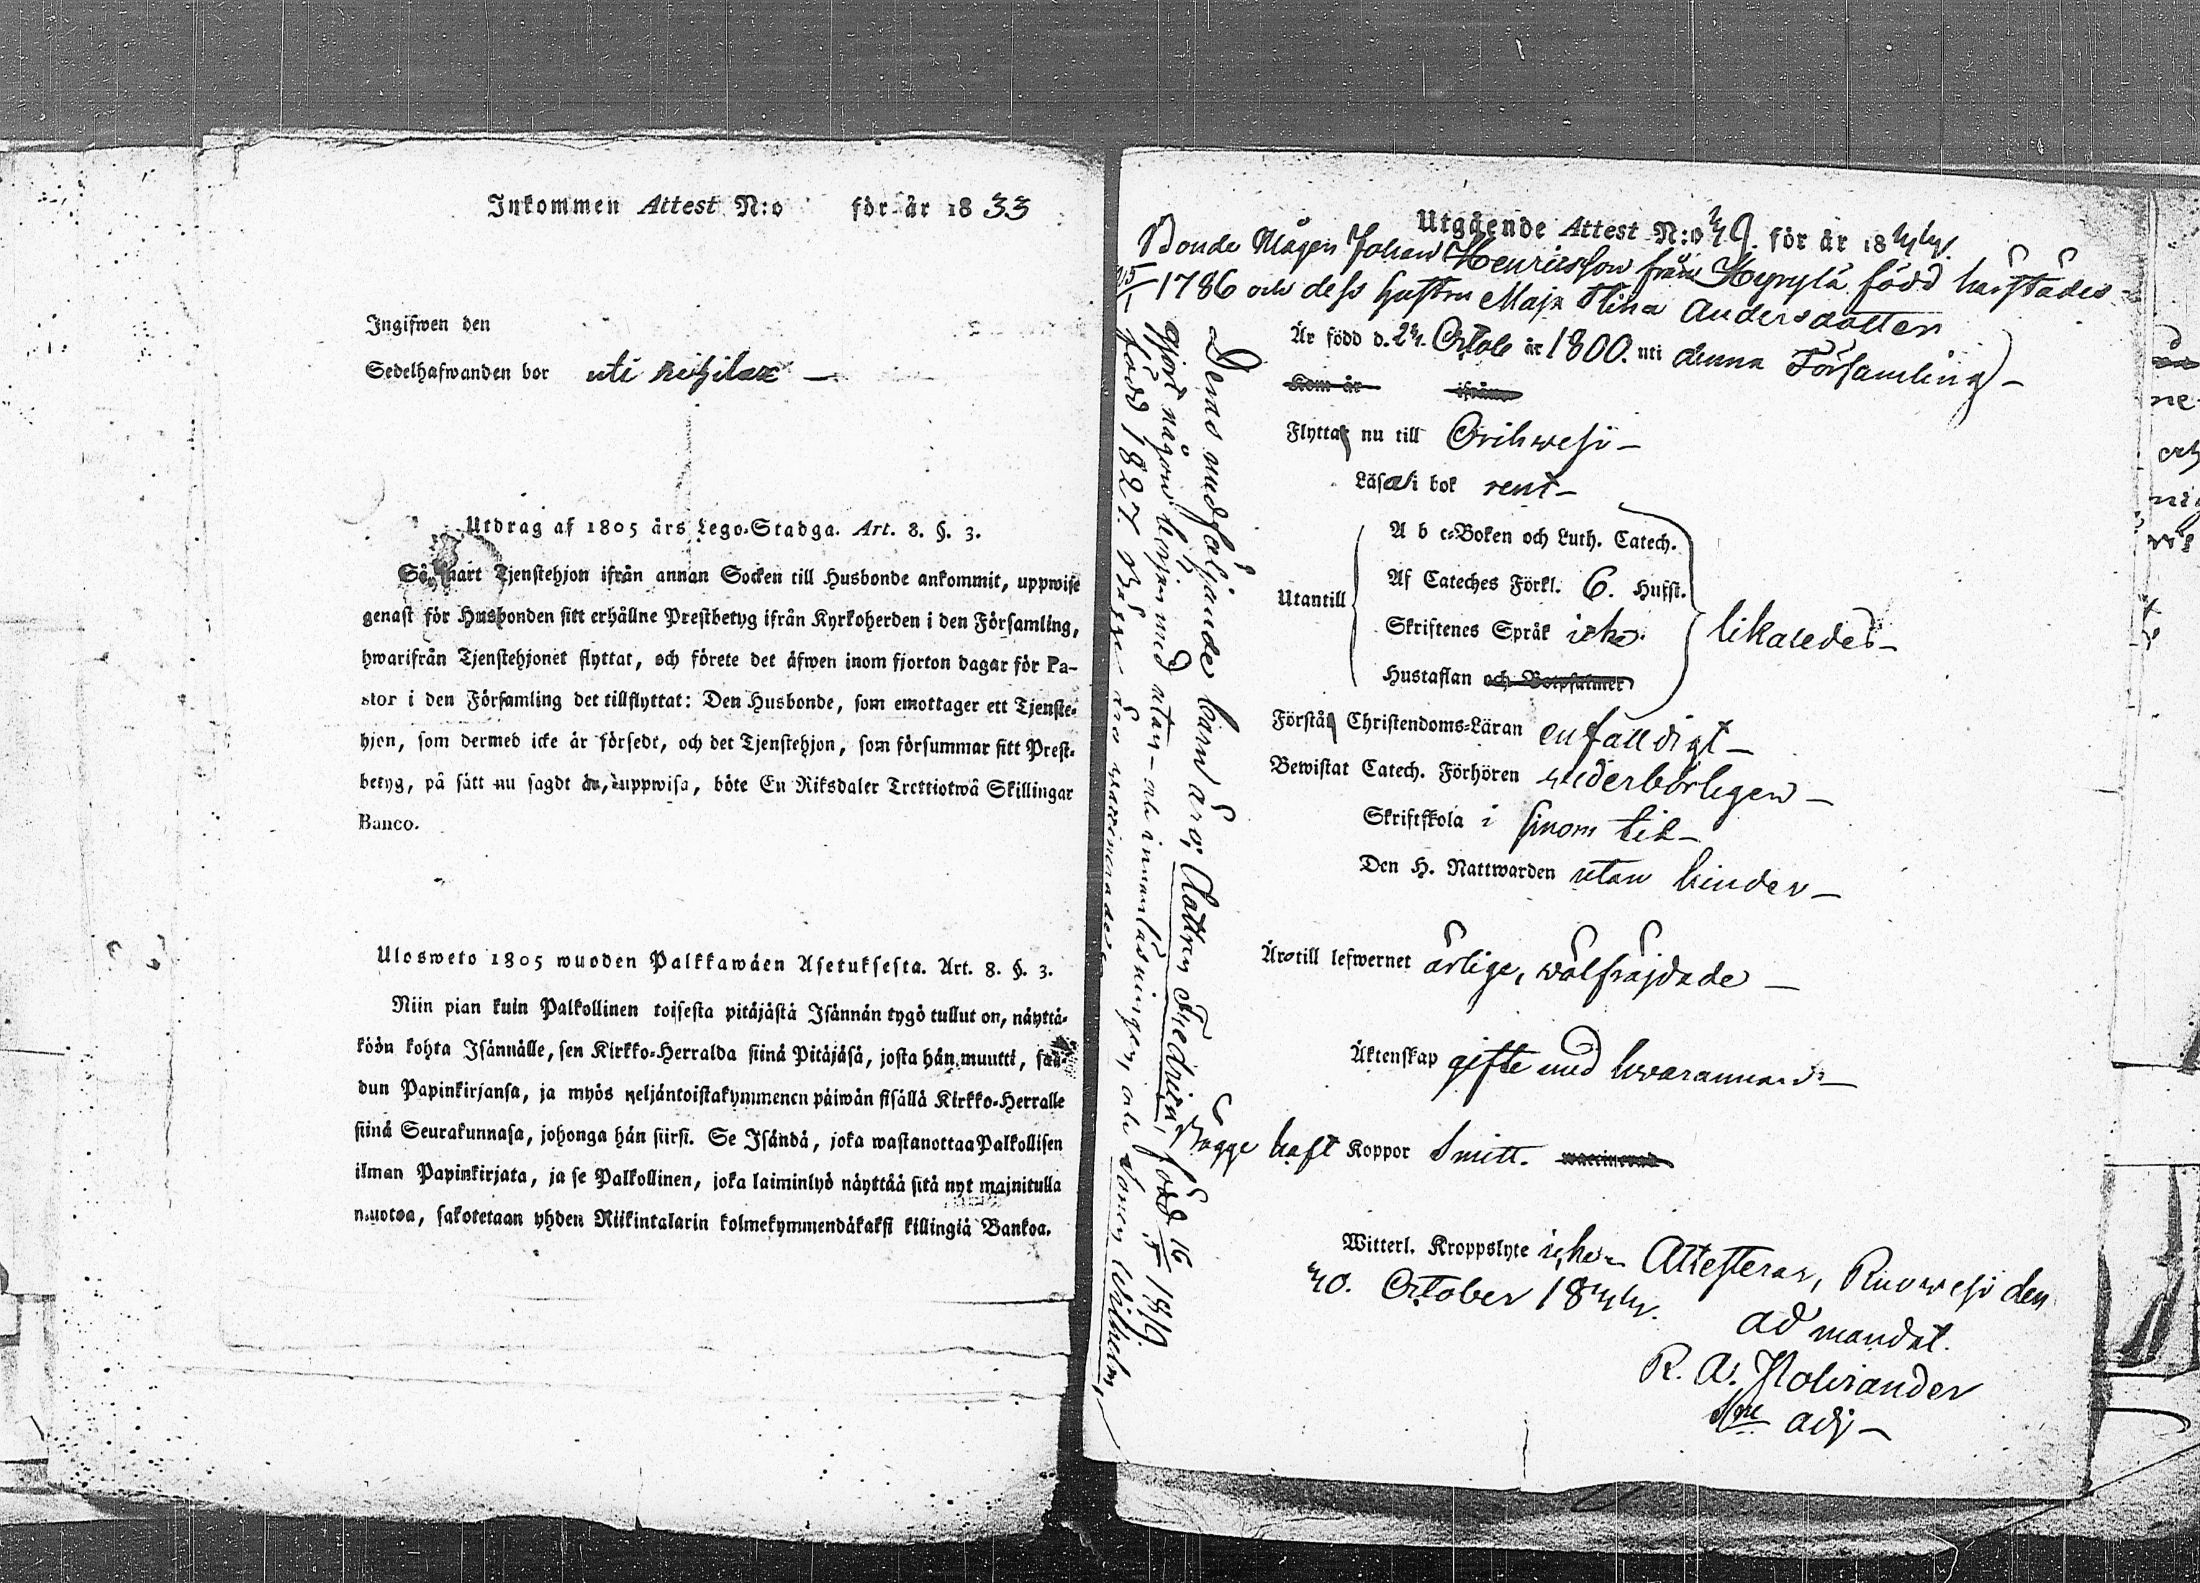 Inkommen Attest N:o för år 1833
Ingifwen den
Sedelhafwanden bor uti
Utdrag af 1805 års Lego-Stadga. Art. 8. §. 3.
Så snart Tjenstehjon ifrån annan Socken till Husbonde ankommit, uppwise
genast för Husbonden sitt erhållne Prestbetyg ifrån Kyrkoherden i den Församling,
hwarifrån Tjenstehjonet flyttat, och förete det åfwen inom fjorton dagar för Pa-
stor i den Församling det tillflyttat: Den Husbonde, som emottager ett Tjenste-
hjon, som dermed icke är försedt, och det Tjenstehjon, som försummar sitt Prest-
betyg, på sätt nu sagdt är, uppwisa, böte En Riksdaler Trettiotwå Skillingar
Banco.
Ulosweto 1805 wuoden Palkkawäen Asetuksesta. Art. 8. §. 3.
Niin pian kuin Palkollinen toisesta pitäjästä Isännän tygö tullut on, näyttä-
köön kohta Isännälle, sen Kirkko-Herralda siinä Pitäjäsä, josta hän muutti, saa-
dun Papinkirjansa, ja myös neljäntoistakymmenen päiwän sisällä Kirkko-Herralle
siinä Seurakunnasa, johonga hän siirsi. Se Isändä, joka wastanottaa Palkollisen
ilman Papinkirjata, ja se Palkollinen, joka laiminlyö näyttää sitä nyt majnitulla
muotoa, sakotetaan yhden Riikintalarin kolmekymmendäkaksi killingiä Bankoa.
Utgående Attest N:o 39. för år 1833.
Bonde Mågen Johan Henricsson från Hyrylä född härstädes
25/1 1786 och dess hustru Maja Stina Andersdotter
Är född d. 23. Octob år 1800. uti denna Församling –
Kom år ifrån
Flytta nu till Orihwesi –
Läsa i bok rent –
A b c-Boken och Luth. Catech.
Af Cateches Förkl. 6. Hufst.
Utantill
Skriftenes Språk icke.
likaledes –
Hustaflan och Botpsalmer
Förstå Christendoms-Läran enfalldigt –
Bewistat Catech. Förhören wederbörligen –
Skriftskola i sinom tid –
Den H. Nattwarden utan hinder –
Äro till lefwernet ärlige, wälfräjdade –
Äktenskap gifte med hwarannan –
Bägge haft Koppor Smitt. waccinerad
Witterl. Kroppslyte icke – Attesterar, Ruowesi den
30. October 1833.
ad mandat.
R. A. Molirander
adj –
Deras medföljande barn äro; Dottren Fredrica, född 16/5 1819
gjort någon början med utan- och innanläsningen, och Sonen Wilhelm,
född 1827. Bägge äro waccinerade